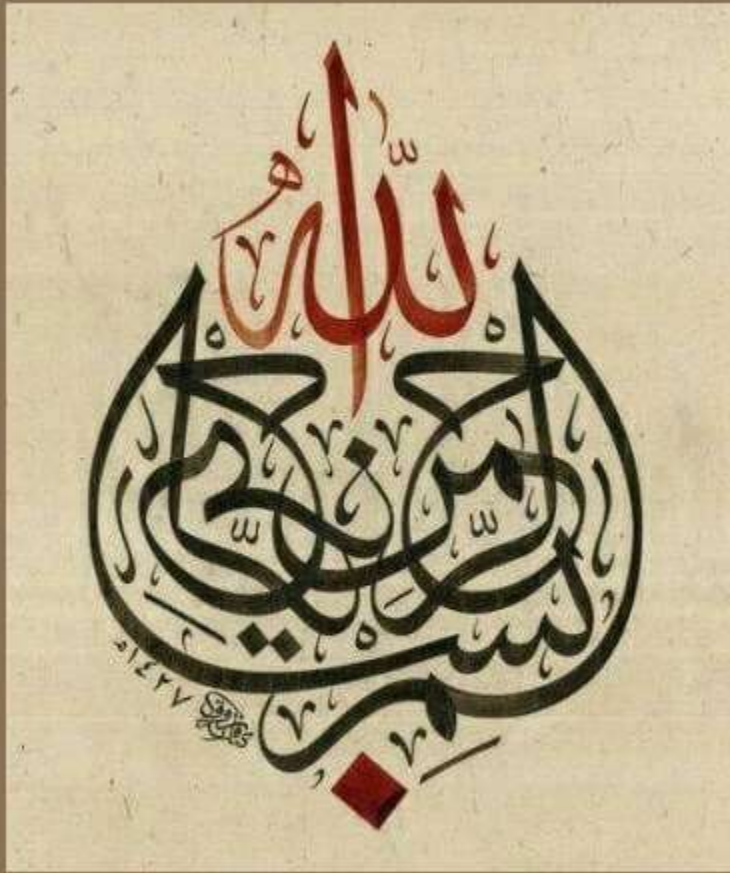 بِسْمِ اللّٰهُ الرَّحْمٰنِ الرَّحِيمِ
١٤٢٧هـ